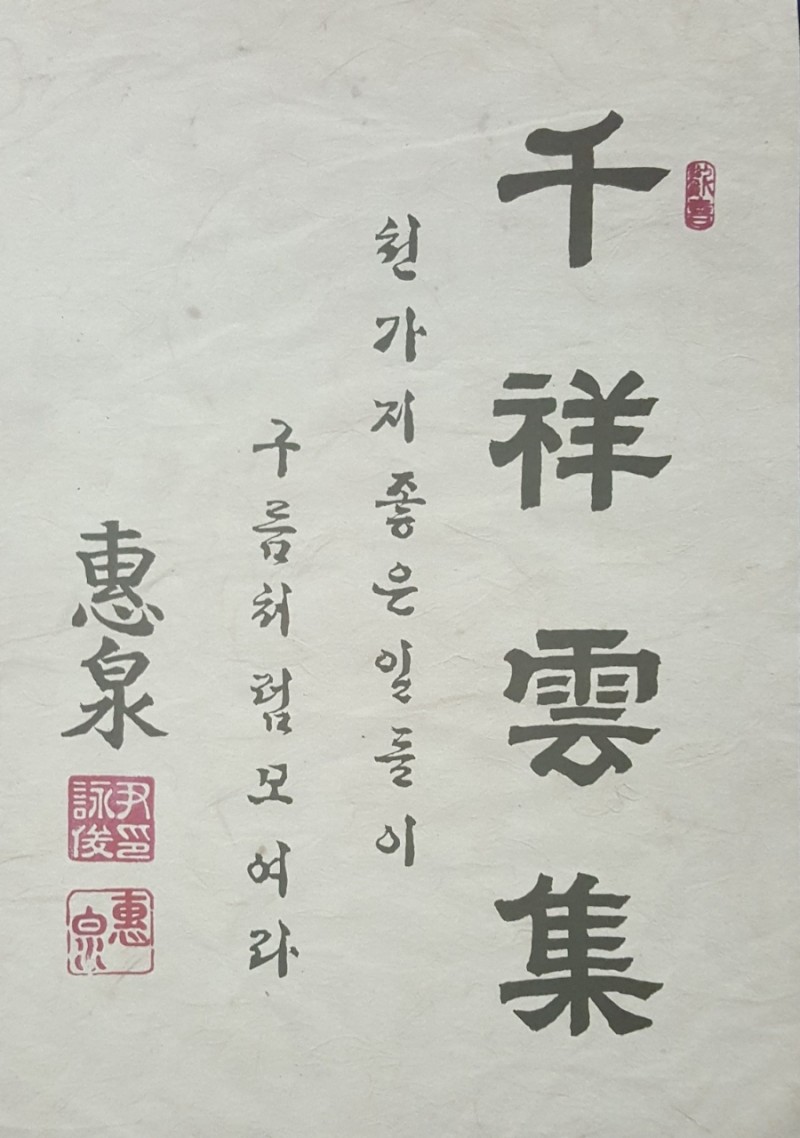 千祥雲集
천가지좋은일들이
구름처럼모여라
惠泉
尹印
詠俊
惠
泉